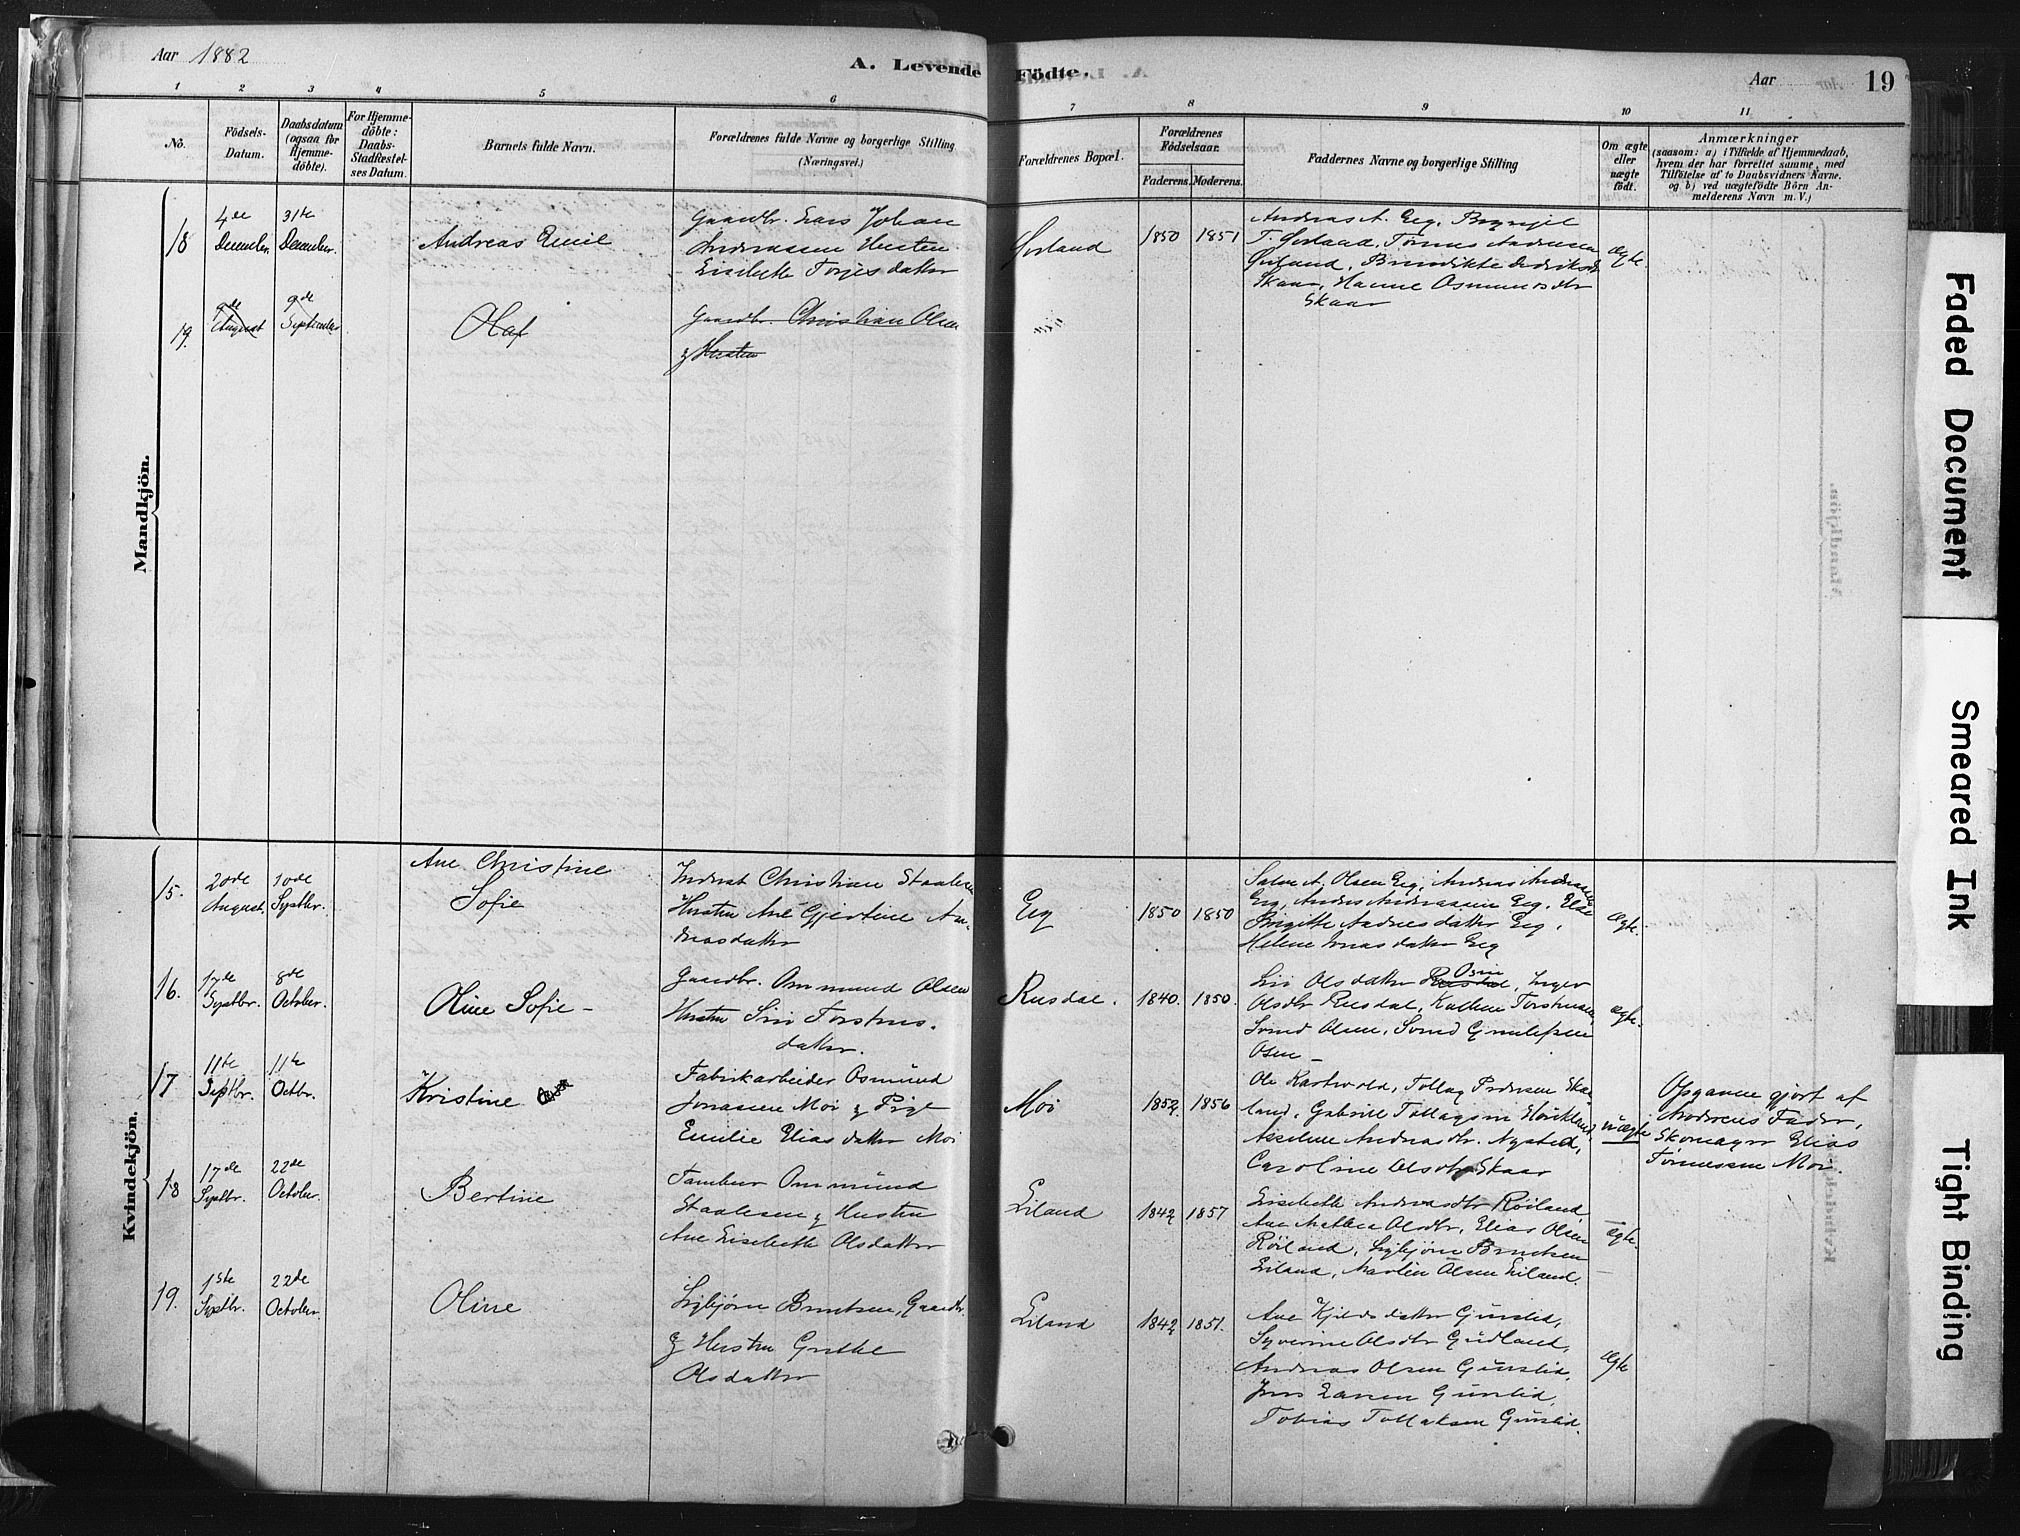 Aar 1882
A. Levende Födte.
Aar
19
1 2 3 4 5 6 7 8 9 10 11
No.
Födsels-
Datum.
Daabsdatum
(ogsaa for
Hjemme-
döbte).
For Hjemme-
döbte:
Daabs-
Stadfæstel-
ses Datum.
Barnets fulde Navn.
Forældrenes fulde Navne og borgerlige Stilling
(Næringsvei.)
Forældrenes Bopæl.
Forældrenes
Födselsaar.
Faderens. Moderens.
Faddernes Navne og borgerlige Stilling
Om ægte
eller
uægte
födt.
Anmærkninger
(saasom: a) i Tilfælde af Hjemmedaab,
hvem der har forrettet samme, med
Tilföielse af to Daabsvidners Navne.
og b) ved uægtefödte Börn An-
melderens Navn m. V.)
Mandkjön.
18
4de
December
31te
December
Andreas Emil
Gaardbr. Lars Johan
Andreassen Hustru
Lisebeth Torjesdatter
Gyland
1850
1851
Andreas A. Eeg,
T. Gyland, Tønnes Andreassen
Gyland,
Skaar, Hanne Osmundsdtr
Skaar
Ægte.
19.
9de
August
9de
September
Olaf
Gaardbr. Christian Olsen
& Hustru
Kvindekjön.
15.
20de
August
10de
Septbr.
Ane Christine
Sofie
Inderst Christian Staalesen
Hustru Ane Gjertine An-
dreasdatter
Eeg
1850
1850
Salve A. Olsen Eeg, Andreas Andreassen
Eeg, Andreas Andreassen Eeg, Else
Birgitte Andreasdatter Eeg,
Helene Jonasdatter Eeg
Ægte.
16.
17de
Septbr.
8de
October.
Oline Sofie –
Gaardbr. Ommund Olsen
Hustru Siri Torstens-
datter.
Rusdal.
1840.
1850.
Siri Olsdatter Osen, Inger
Olsdtr Rusdal, Torstensen,
Svend Olsen, Svend Gunleifsen
Osen –
Ægte.
17
11te
Septbr.
11te
Octbr.
Kristine
Fabrikarbeider Osmund
Jonassen Moi & Pige
Emilie Eliasdatter Moi
Moi
1852.
1856
Ole Kartvold, Tollag Pedersen Ska-
land, Gabriel Tollagsen
Asseline Andreasdtr. Nysted,
Caroline Olsdtr Skaar
uægte
Opgaven gjort af
Moderens Fader,
Skomager Elias
Tønnessen Moi.
18
17de
Septbr.
22de
October.
Bertine
Tambur Ommund
Staalesen & Hustru
Ane Lisebeth Olsdatter
Eiland
1842
1857
Lisebeth Andreasdtr Røiland
Ane Mathea Olsdtr, Elias Olsen
Røiland, Sigbjørn Berntsen
Eiland, Martin Olsen Eiland.
Ægte.
19.
1ste
Septbr.
22de
October.
Oline
Sigbjørn Berntsen, Gaardbr.
& Hustru Grethe
Olsdatter
Eiland
1842
1851.
Ane Kjeldsdatter Gunslid,
Syverine Olsdtr Gudland,
Andreas Olsen Gunslid,
Jens Larsen Gunslid,
Tobias Tollaksen Gunslid.
Ægte
Faded Document
Smeared Ink
Tight Binding